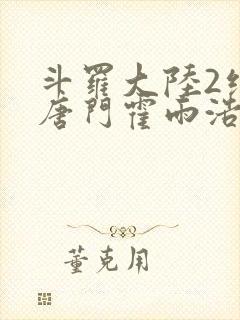 斗羅大陸2
唐門霍雨浩
董克用